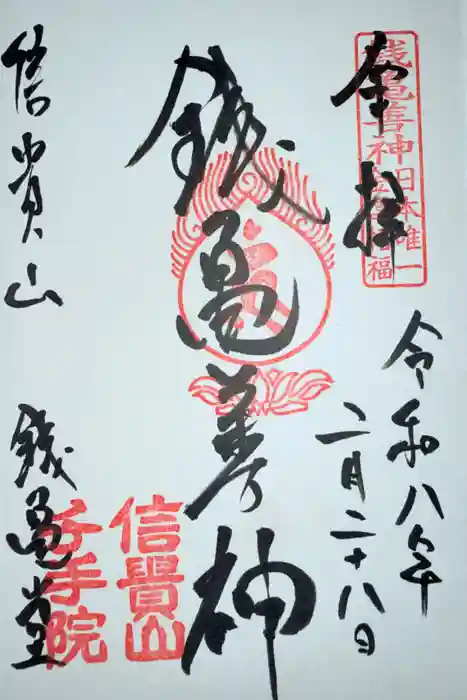 奉拝
銭亀善神
日本唯一
福
令和八年
二月二十八日
銭亀善神
信貴山
千手院
信貴山
銭亀堂